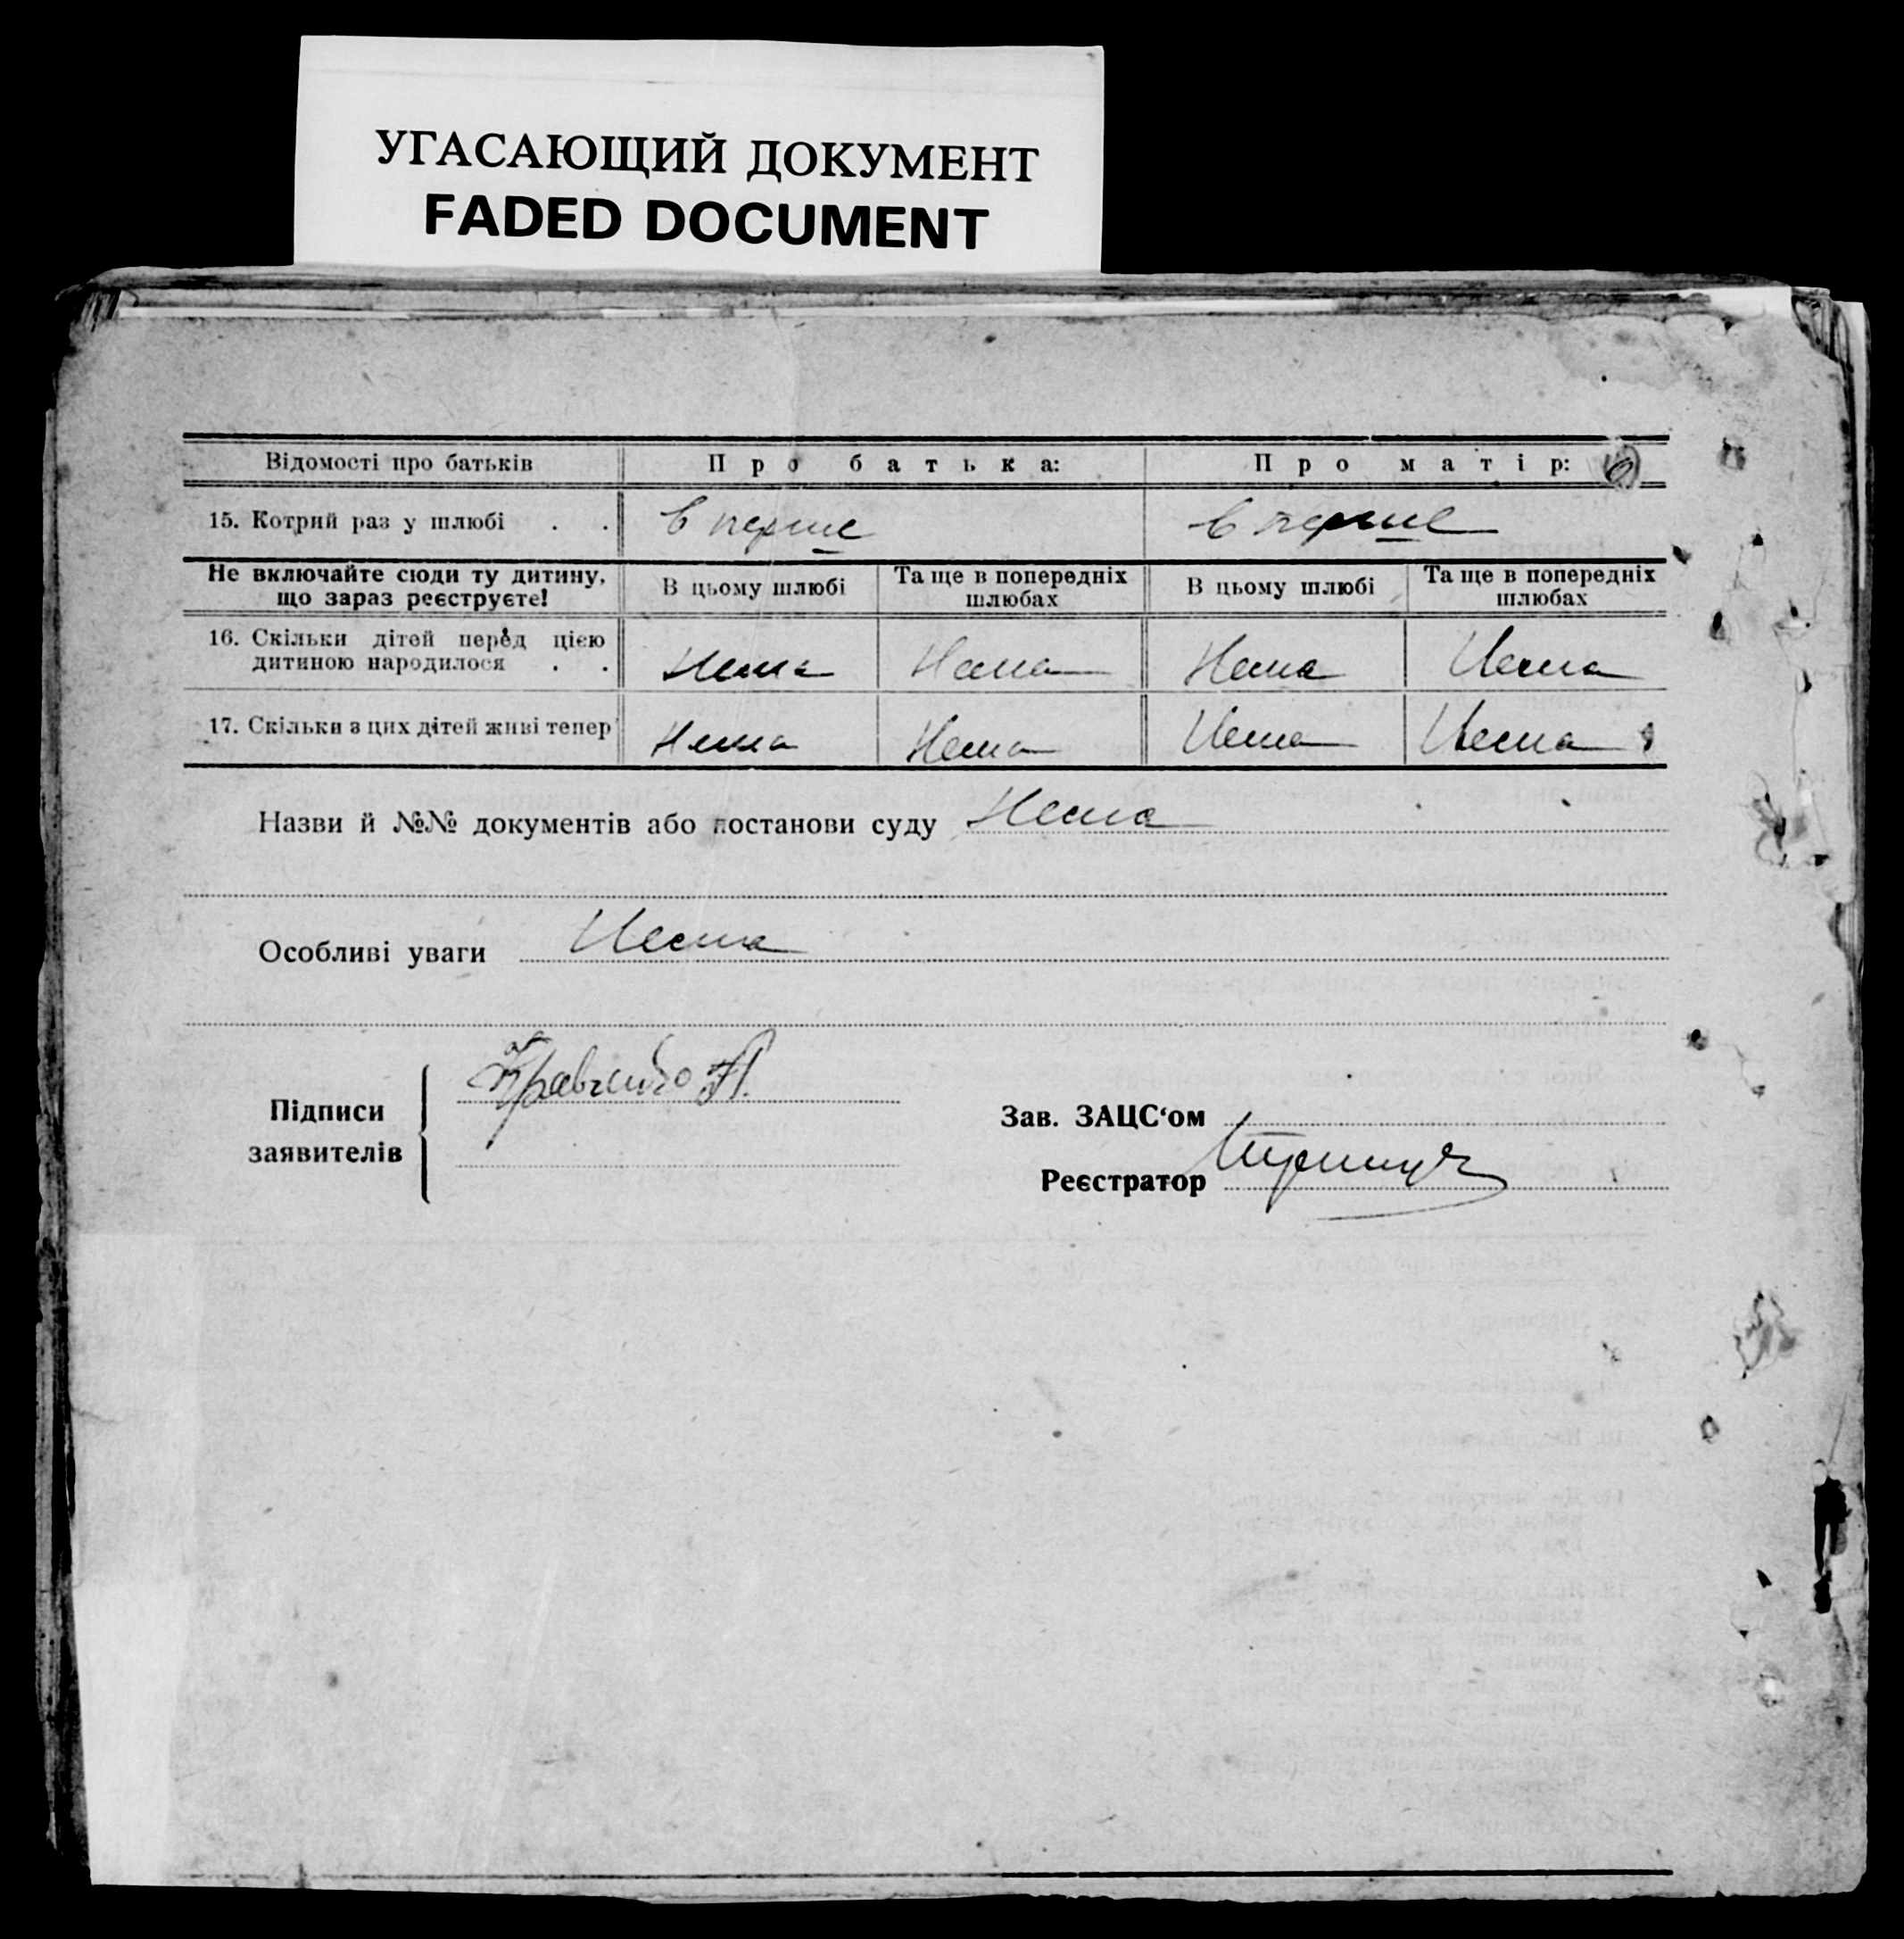 УГАСАЮЩИЙ ДОКУМЕНТ
FADED DOCUMENT
Відомості про батьків Про батька: Про матір:
15. Котрий раз у шлюбі . . в перше в перше
Не включайте сюди ту дитину, що зараз реєструєте! В цьому шлюбі Та ще в попередніх шлюбах В цьому шлюбі Та ще в попередніх шлюбах
16. Скільки дітей перед цією
дитиною народилося . . Нема Нема Нема Нема
17. Скільки з цих дітей живі тепер Нема Нема Нема Нема
Назви й №№ документів або постанови суду Нема
Особливі уваги Нема
Підписи
заявителів
Кравченко
Зав. ЗАЦС‘ом
Реєстратор